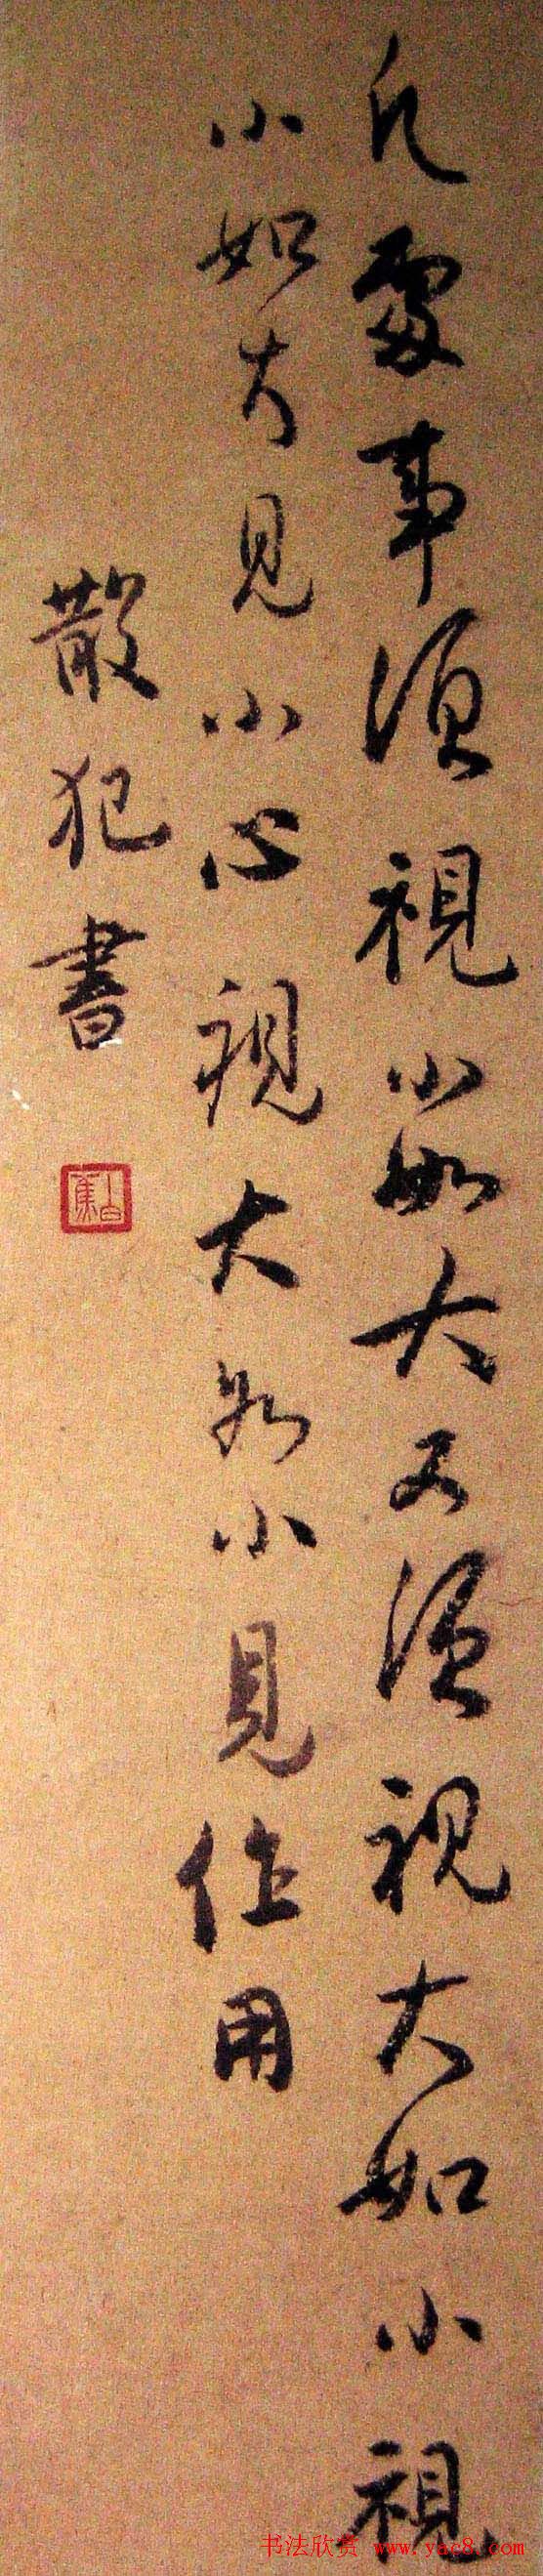 凡處事須視小如大又須視大如小視
小如大見小心視大如小見作用
散
書
书法欣赏 www.yac8.com